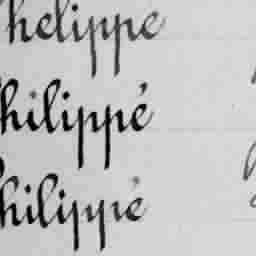 helippe
hilippé
hilippé